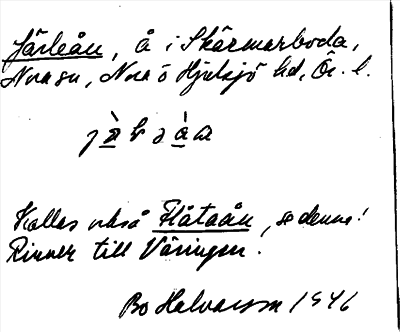 Järleån, å i Skärmarboda,
Nora sn, Nora o Hjulsjö hd, Ör. l.
Kallas också Flåtaån, se denna!
Rinner till Väringen.
Bo Halvarsson 1946